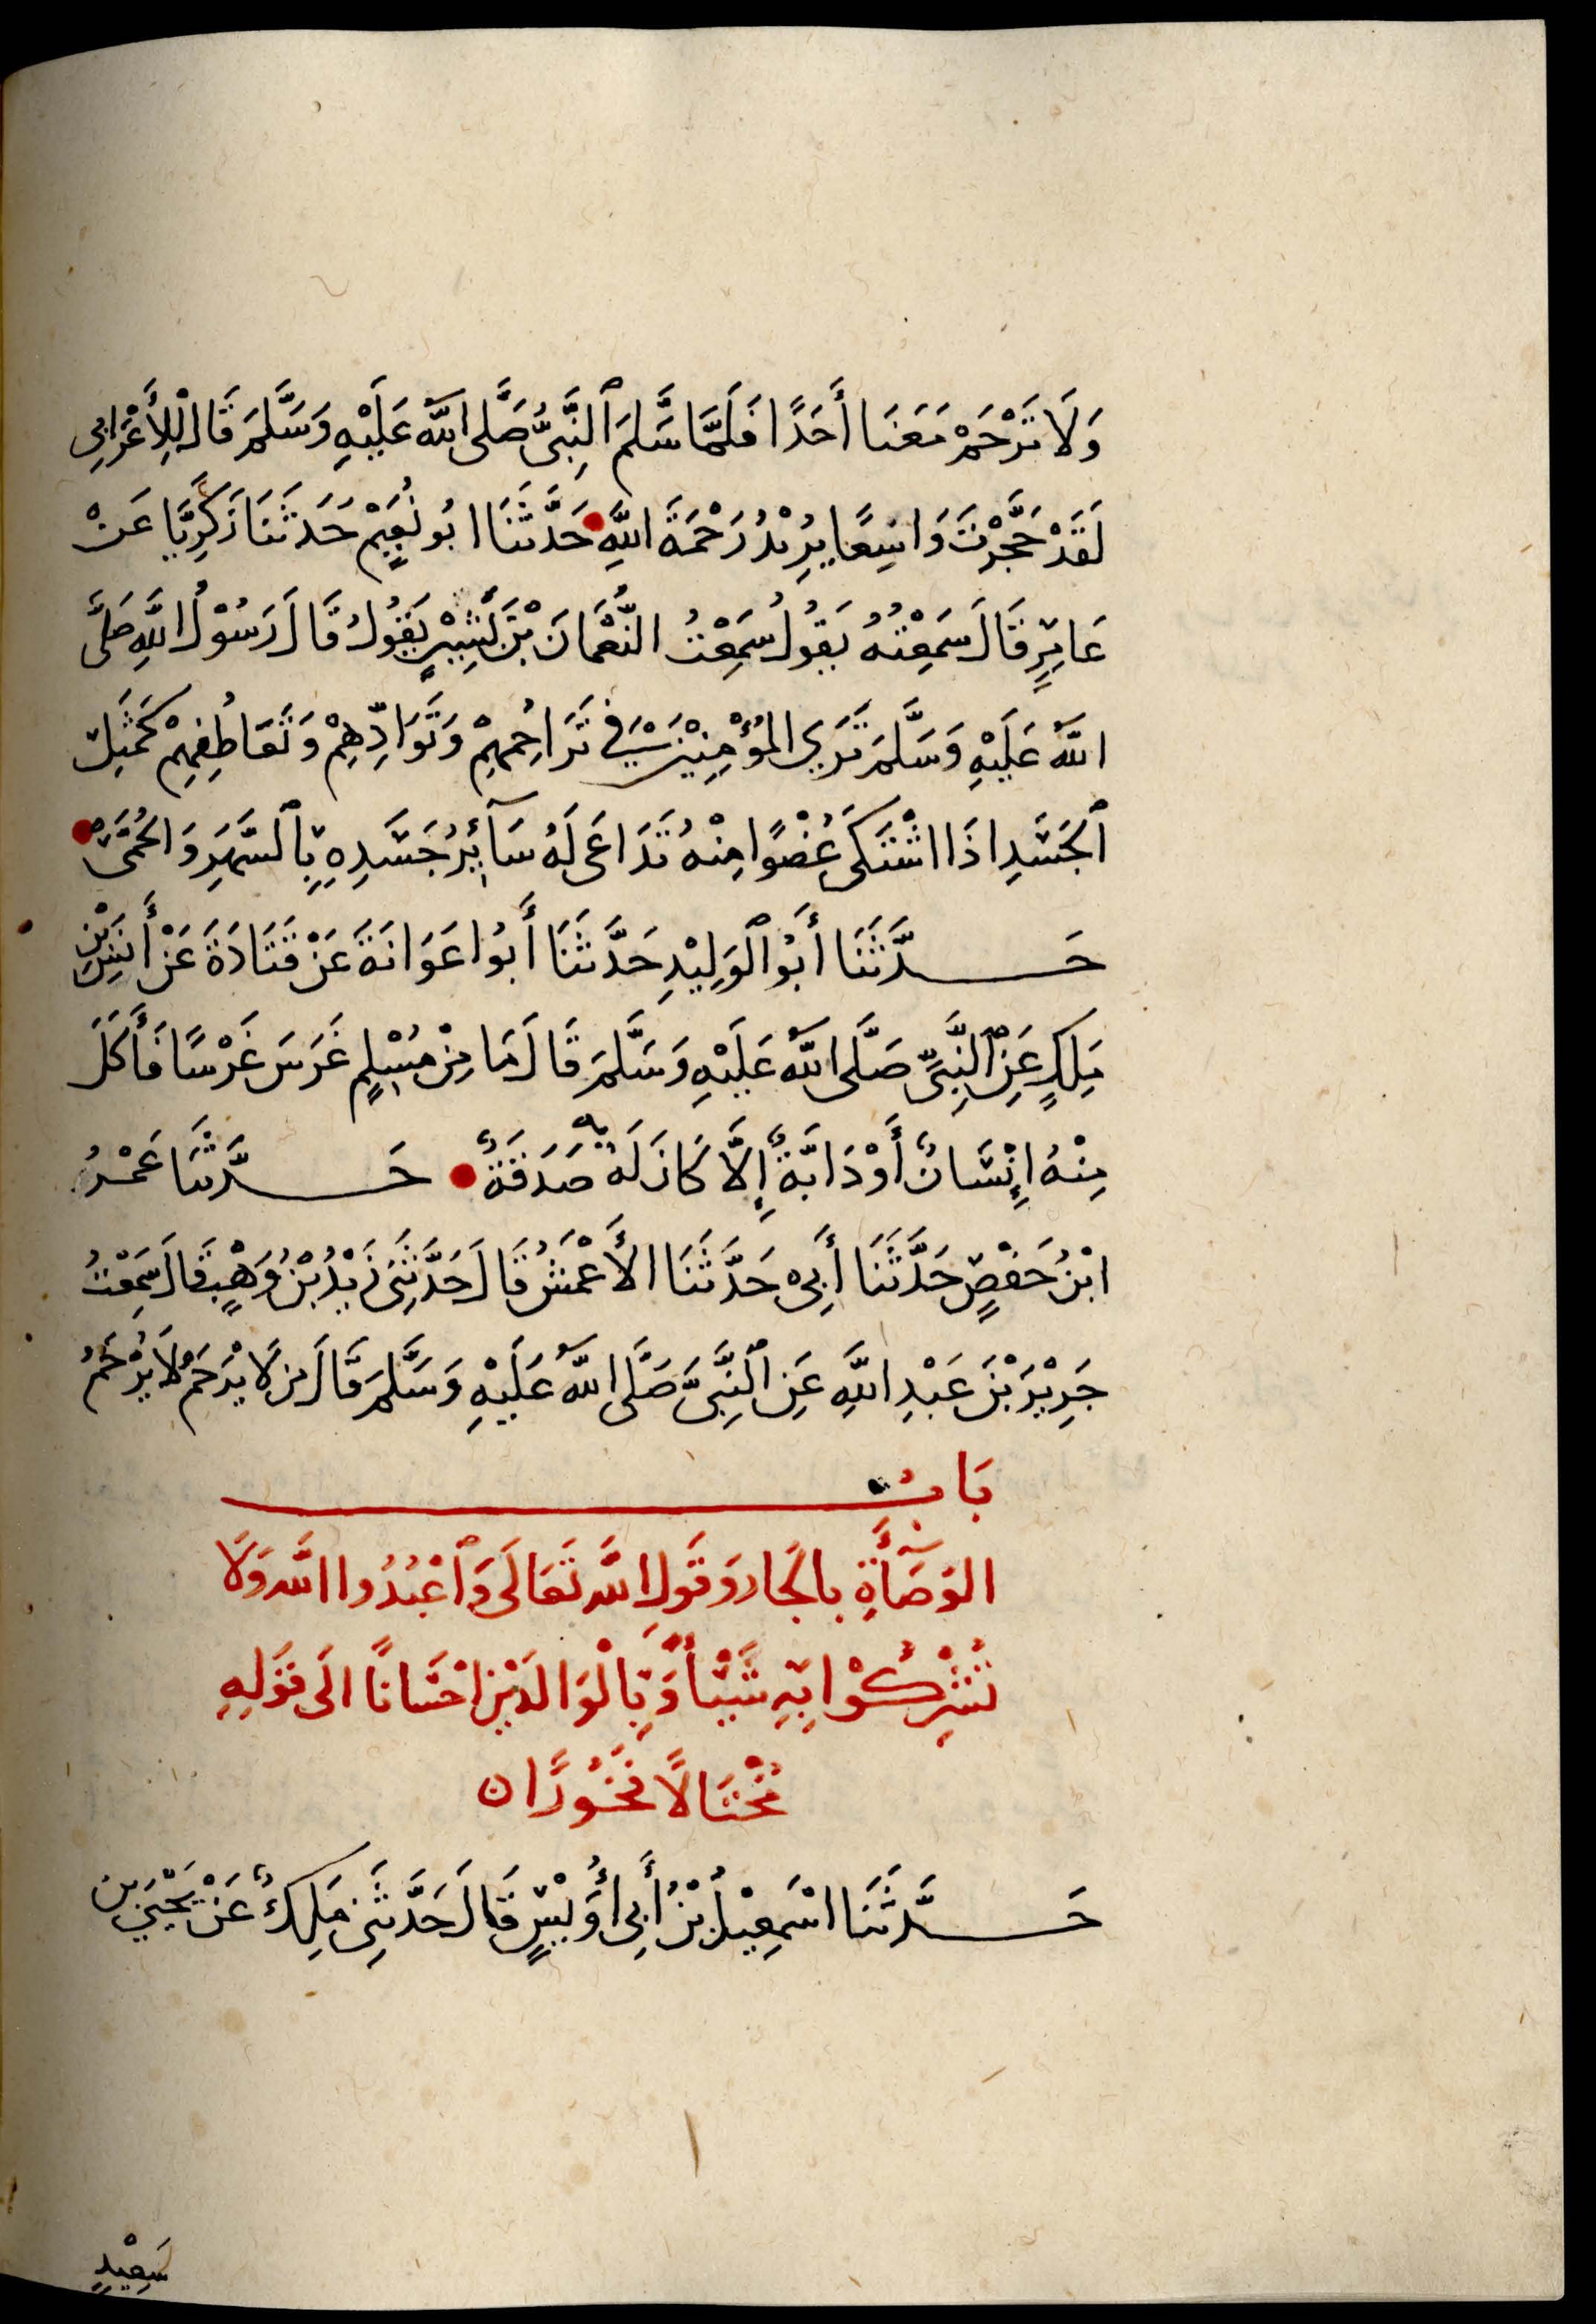 وَلَا تَرْحَمْ مَعَنَا أَحَدًا فَلَمَّا سَلَّمَ ٱلنَّبِيُّ صَلَّى اللّٰهُ عَلَيْهِ وَسَلَّمَ قَالَ لِلْأَعْرَابِي
لَقَدْ حَجَّرْتَ وَاسِعًا يُرِيْدُ رَحْمَةَ اللّٰهِ حَدَّثَنَا ابُو نُعَيْمٍ حَدَثَنَا زَكَرِيَّا عَنْ
عَامِرٍ قَالَ سَمِعْتُهُ يَقُولُ سَمِعْتُ النُّعْمَانَ بْنَ بَشِيْرٍ يَقُولُ قَالَ رَسُوْلُ اللّٰهِ صَلَّى
اللّٰهُ عَلَيْهِ وَسَلَّمَ تَرَي المُؤْمِنِيْنَ فِي تَرَاحُمِهِمْ وَتَوَادِّهِمْ وَتَعَاطُفِهِمْ كَمَثَلِ
ٱلجَسَدِ اذَا اشْتَكَى عُضْوًا مِنْهُ تَدَاعَى لَهُ سَآئِرُ جَسَدِهِ بِٱلسَّهَرِ وَالحُمَّى
حَدَّثَنَا أَبُو ٱلْوَلِيْدِ حَدَّثَنَا أَبُوا عَوَانَةَ عَنْ قَتَادَةَ عَنْ أَنَسِ بْنِ
مَلِكٍ عَنِ ٱلنَّبِيِّ صَلَّى اللّٰهُ عَلَيْهِ وَسَلَّمَ قَالَ مَا مِنْ مُسْلِمٍ غَرَسَ غَرْسًا فَأَكَلَ
مِنْهُ إِنْسَانٌ أَوْ دَابَّةٌ إِلَّا كَانَ لَهُ بِهِ صَدَقَةٌ حَدَّثَنَا عَمْرُ
ابْنُ حَفْصٍ حَدَّثَنَا أَبِي حَدَّثَنَا الأَعْمَشُ قَالَ حَدَّثَنِي زَيْدُ بْنُ وَهْبٍ قَالَ سَمِعْتُ
جَرِيْرَ بْنَ عَبْدِ اللّٰهِ عَنِ ٱلنَّبِيِّ صَلَّى اللّٰهُ عَلَيْهِ وَسَلَّمَ قَالَ مَن لَا يَرْحَمُ لَا يُرْحَمُ
بَابُ
الوَصَآأَةِ بالجَار وَقَولِ اللّٰهِ تَعَالَى وَٱعْبُدُوا اللّٰهَ وَلَا
تُشْرِكُوْا بِهِ شَيْئاً وَّبِالْوَالدَيْنِ احْسَانًا الَى قَوْلِهِ
مُخْتَالًا فَخُوْرًا ن
حَدَّثَنَا اسْمَعِيْلُ بْنُ أَبِي أُوَيْسٍ قَالَ حَدَّثَنِي مَلِكٌ عَنْ يَحْيَى بن
سَعِيْدٍ